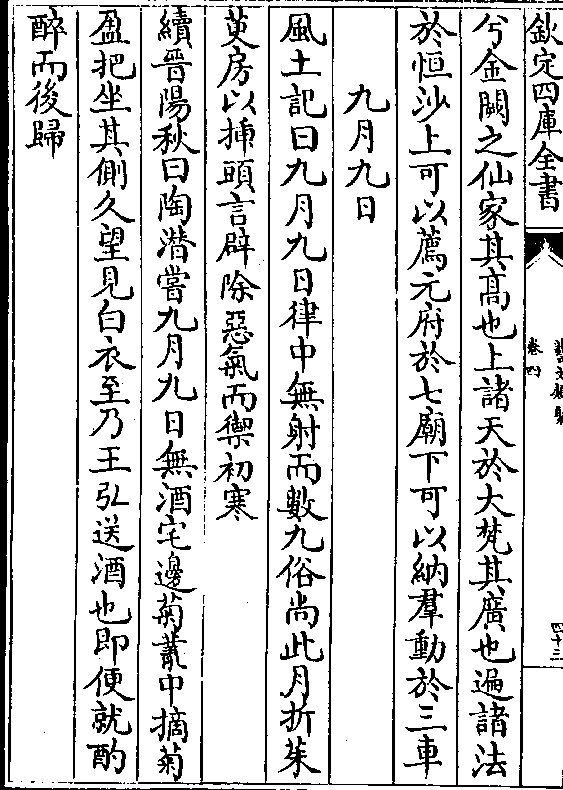 欽定四庫全書
卷四
四十三
兮金闕之仙家其高也上諸天於大梵其廣也遍諸法
於恒沙上可以薦元府於七廟下可以納羣動於三車
九月九日
風土記曰九月九日律中無射而數九俗尚此月折茱
萸房以揷頭言辟除惡氣而禦初寒
續晉陽秋曰陶潛嘗九月九日無酒宅邊菊叢中摘菊
盈把坐其側久望見白衣至乃王弘送酒也即便就酌
醉而後歸